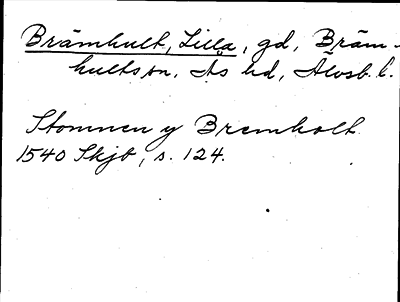 Brämhult, Lilla, gd, Bräm-
hults sn, Ås hd, Älvsb. l.
Stommen y Bremholt
1540 Skjb, s. 124.